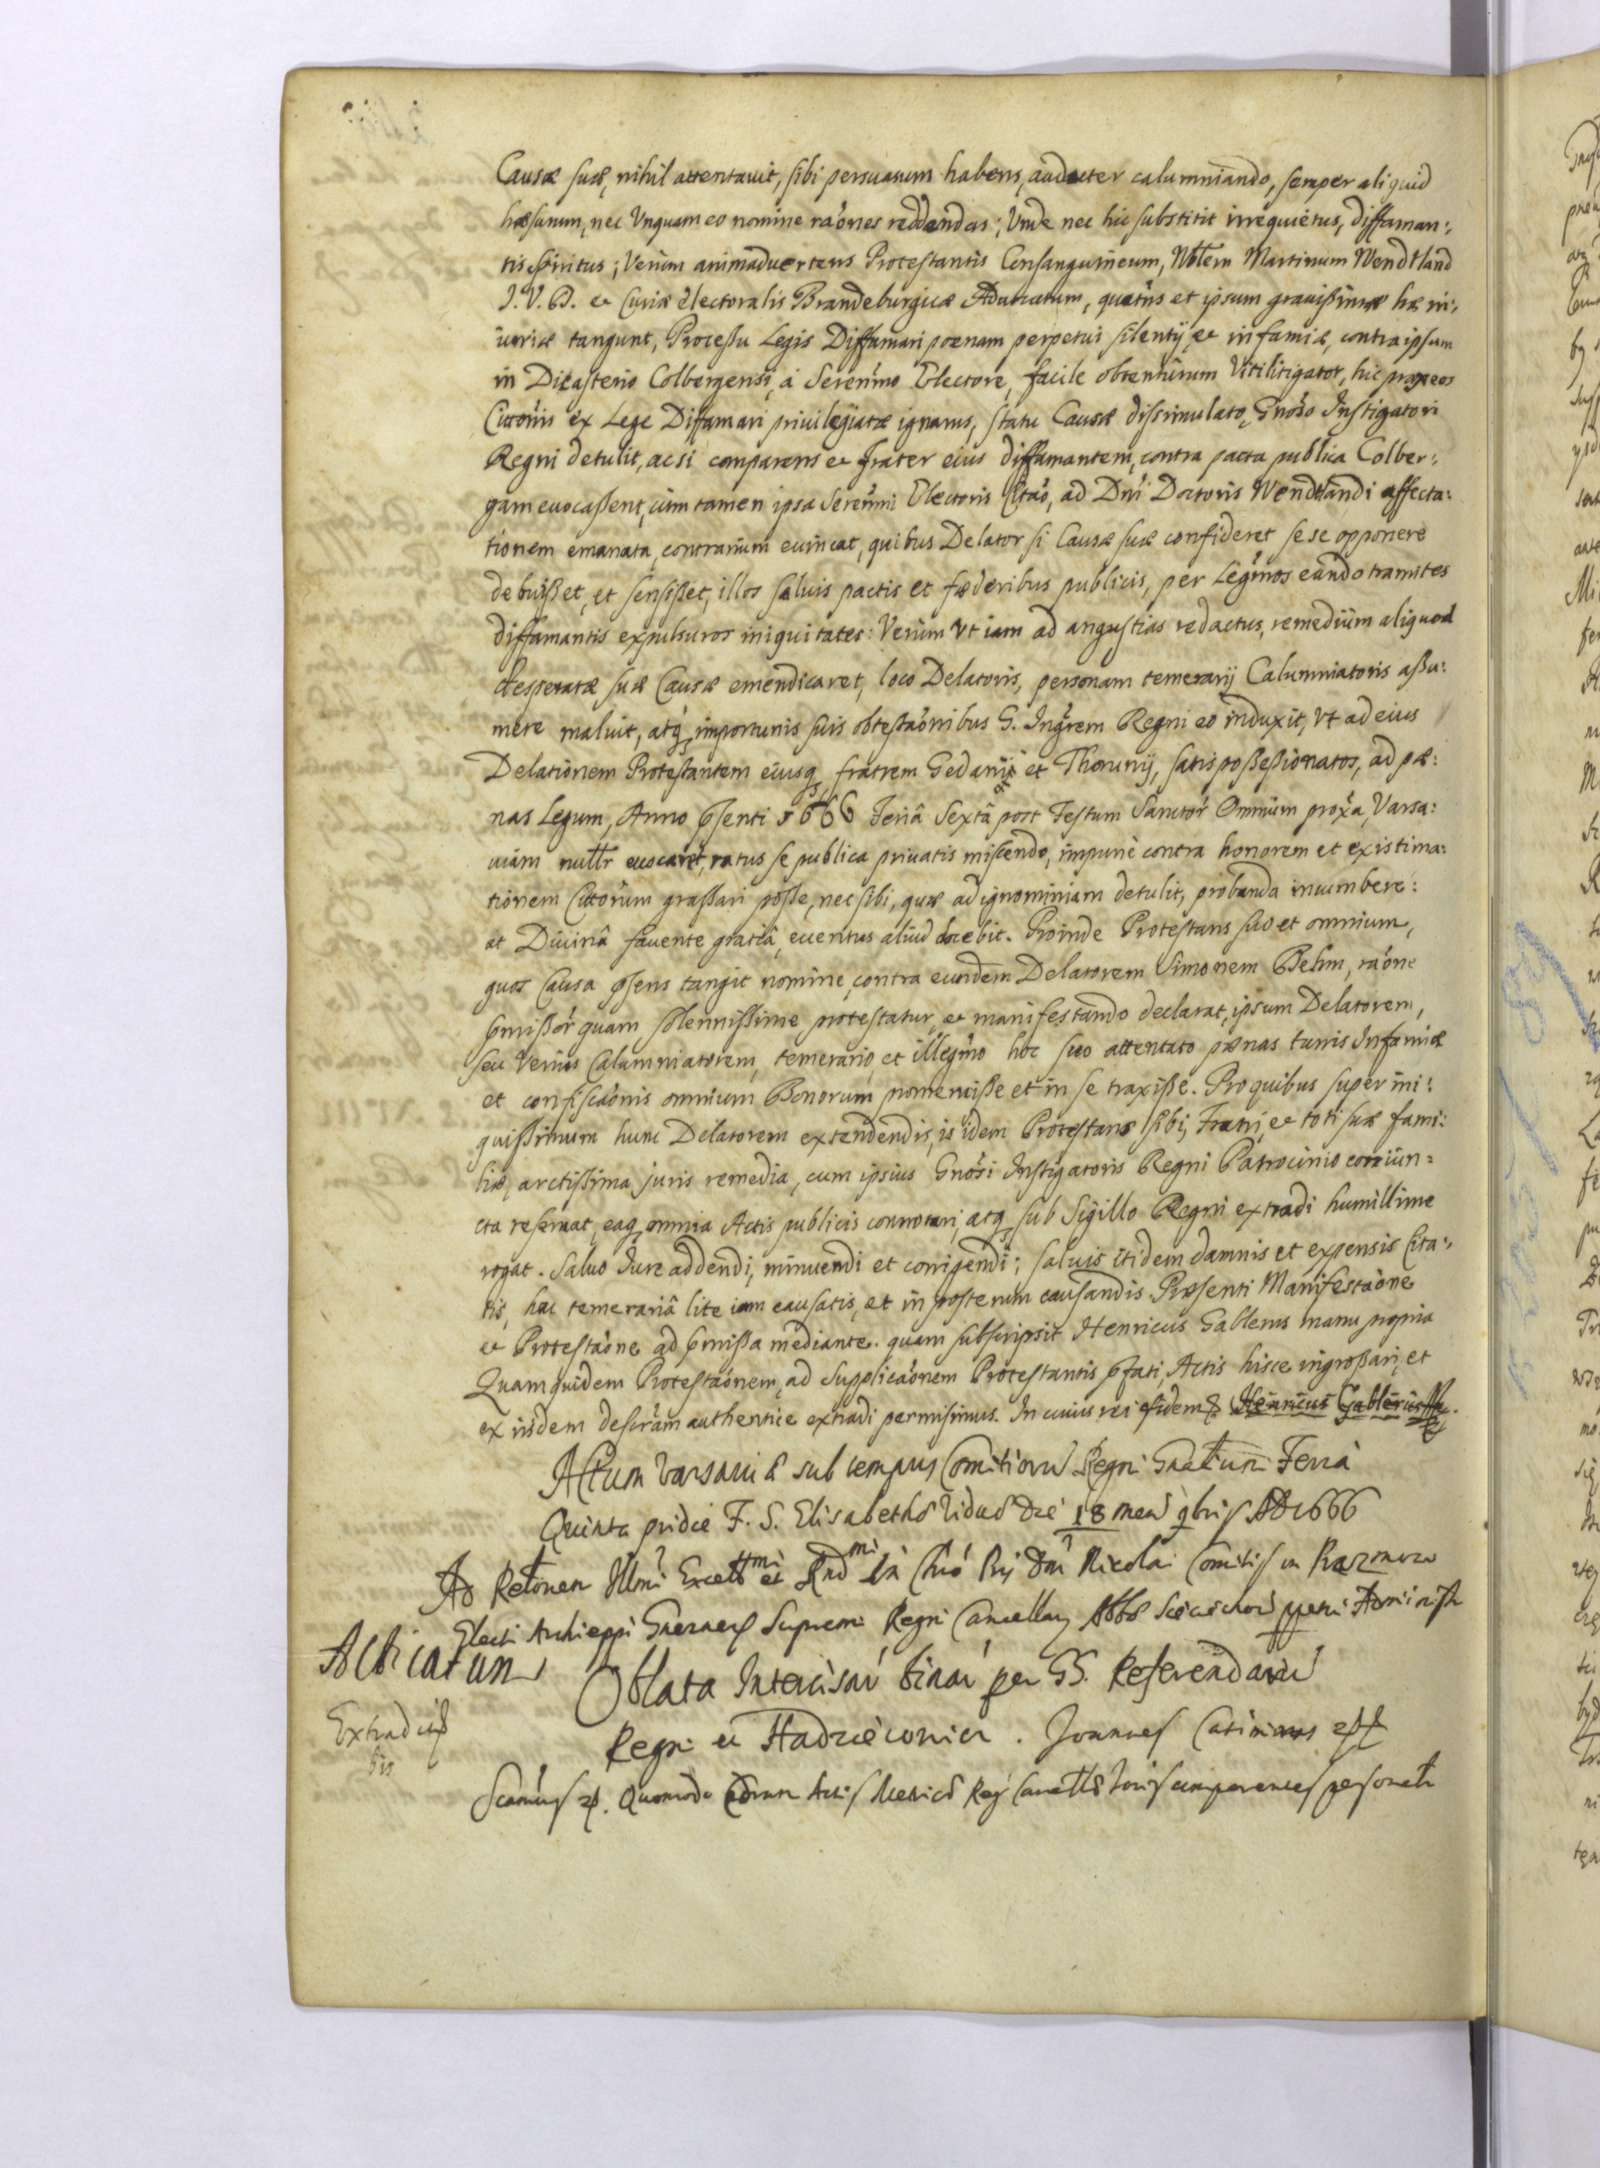 Causæ suæ, nihil attentauit, sibi persuasum habens, audacter calumniando, semper aliquid
hæsurum, nec Vnquam eo nomine raões reddendas; Vnde nec hic substitit irrequietus, diffaman:
tis spiritus; Verùm animaduertens Protestantis Consanguineum, Nbtem Martinum Wendtland
J. V. D. et Curiæ Electoralis Brandeburgicæ Aduocatum, quatns et ipsum grauissimæ hæ in:
iuriæ tangunt, Processu Legis Diffamari pœnam perpetui silentij, et infamiæ, contra ipsum
in Dicasterio Colbergensi, à Serenmo Electore, facile obtenturum Vitilitigator, hic
Citoõnis ex Lege Diffamari priuilegiatæ ignarus, statu Causæ dissimulato, Gnoso Instigatori
Regni detulit, ac si comparens et Frater eius diffamantem, contra pacta publica Colber:
gam euocassent, cùm tamen ipsa Serenmi Electoris Citaõ, ad Dni Doctoris Wendtlandi affecta:
tionem emanata, contrarium euincat, quibus Delator si Causæ suæ confideret sese opponere
debuisset, et sensisset, illos saluis pactis et fœderibus publicis, per Legmos eundo tramites
diffamantis expulsuros iniquitates: Verùm vt iam ad angustias redactus, remedium aliquod
desperatæ suæ Causæ emendicaret, loco Delatoris, personam temerarij Calumniatoris assu:
mere maluit, atq importunis suis obtestaõnibus G. Ingrem Regni eo induxit, vt ad eius
Delationem Protestantem eiusq fratrem Gedanij et Thorunij, satis possessionatos, ad pœ:
nas Legum, Anno pñsenti 1666 Feriâ Sextâ post Festum Sanctor Omnium proxa, Varsa:
uiam nullr euocaret, ratus se publica priuatis miscendo, impunè contra honorem et existima:
tionem Citorum grassari posse, nec sibi, quæ ad ignominiam detulit, probanda incumbere:
at Diuinâ fauente gratiâ, euentus aliud docebit. Proinde Protestans suo et omnium,
quos Causa pñsens tangit nomine, contra eundem Delatorem Simonem Behm, raõne
pmissor quam solennissime protestatur, et manifestando declarat, ipsum Delatorem,
seu Verius Calumniatorem, temerario, et illegmo hoc suo attentato pœnas Infamiæ
et confiscaõnis omnium Bonorum promeruisse et in se traxisse. Pro quibus super ini:
quissimum hunc Delatorem extendendis, is idem Protestans sibi, Fratri, et toti suæ fami:
liæ, arctissima juris remedia, cum ipsius Gnosi Instigatoris Regni Patrocinio coniun:
cta reseruat, eaq omnia Actis publicis connotari, atq sub Sigillo Regni extradi humillime
rogat. Saluo Iure addendi, minuendi et corrigendi; saluis itidem damnis et expensis Cita:
tis, hac temerariâ lite iam causatis, et in posterum causandis. Præsenti Manifestaõne
et Protestaõne ad pmissa mediante. quam subscripsit Henricus Gablerus manu propria
Quam quidem Protestaõnem, ad Supplicaõnem Protestantis pfati, Actis hisce ingrossari, et
ex iisdem descram authentice extradi permisimus. In cuius rei fidem Henricus Gablerus
Actum Varsauiæ sub tempus Comitioru Regni Feria
Quinta pridie F. S. Elisabethæ Viduæ die 18 mens 9bris AD 1666
Ad Retõnem Illmi Excellmi et Rnd in Chro Pris Dni Nicolai Comitis in Prazmow
Electi Archieppi Gnesnen Supremi Regni Cancellarij
Albicatum
Oblata Intercisar binar per GG. Referendariu
Extradit
bis
Regni et Hadziewicz. Joannes Casimirus
Scimus. Quomodo coram Actis Metrices Reg Cancell comparentes personalr